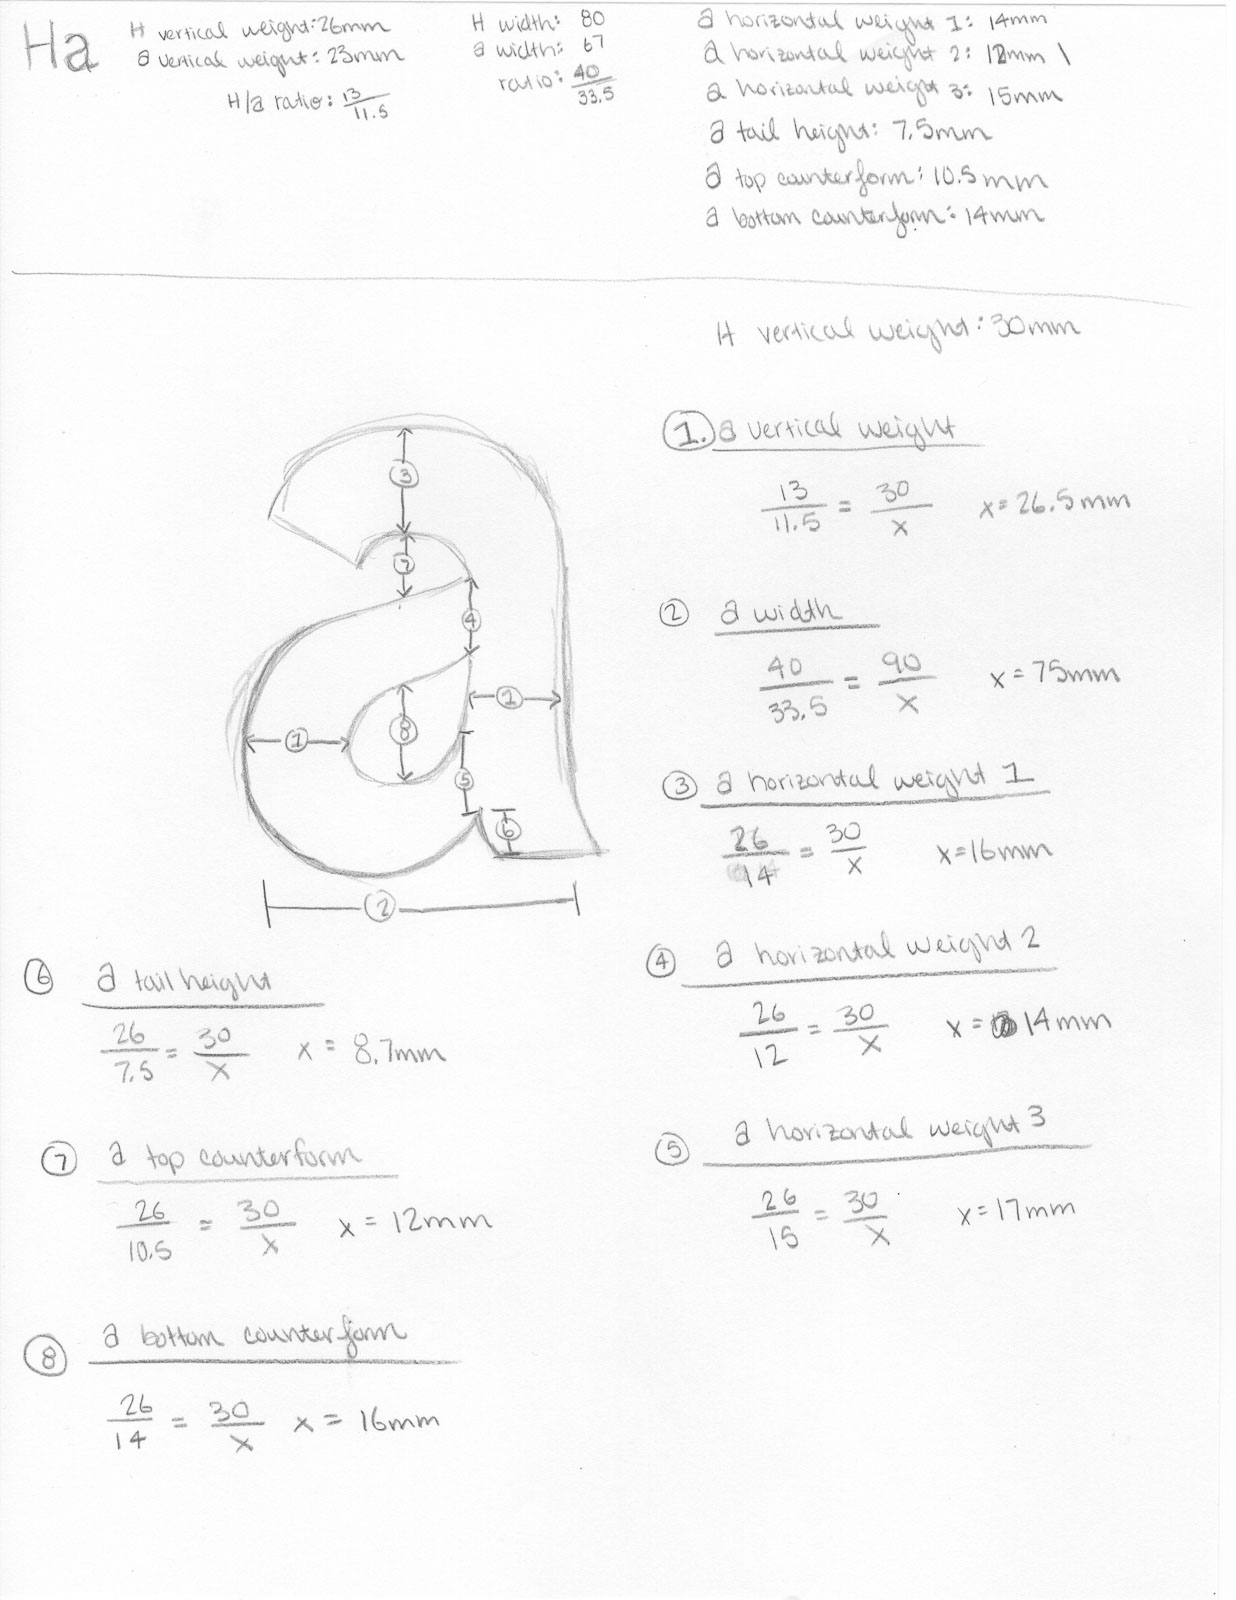 Ha
H vertical weight: 26mm
a vertical weight: 23mm
H/a ratio: 13/11.5
H width: 80
a width: 67
ratio: 40/33.5
a horizontal weight 1: 14mm
a horizontal weight 2: 12mm \
a horizontal weight 3: 15mm
a tail height: 7.5mm
a top counterform: 10.5mm
a bottom counterform: 14mm
H vertical weight: 30mm
3
7
4
1
8
1
5
6
2
1. a vertical weight
13/11.5 = 30/x x= 26.5mm
2 a width
40/33.5 = 90/x x = 75mm
3 a horizontal weight 1
26/14 = 30/x x=16mm
4 a horizontal weight 2
26/12 = 30/x x = 14mm
5 a horizontal weight 3
26/15 = 30/x x=17mm
6 a tail height
26/7.5 = 30/x x = 8.7mm
7 a top counterform
26/10.5 = 30/x x = 12mm
8 a bottom counterform
26/14 = 30/x x = 16mm